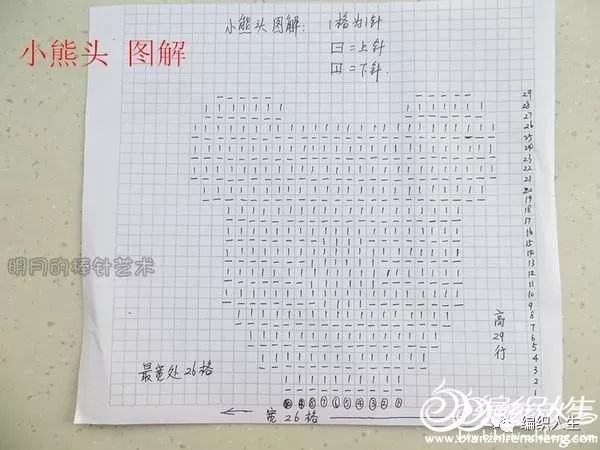 小熊头 图解：  1格为1针
小熊头 图解
⊟=上针
◫=下针
29
28
27
26
25
24
23
22
21
20
19
18
17
16
15
14
13
12
11
10
9
8
7
6
5
4
3
2
1
明月的棒针艺术
高29行
最宽处26格
⑩⑨⑧⑦⑥⑤④③②①
← 宽26格
编织人生
编织人生